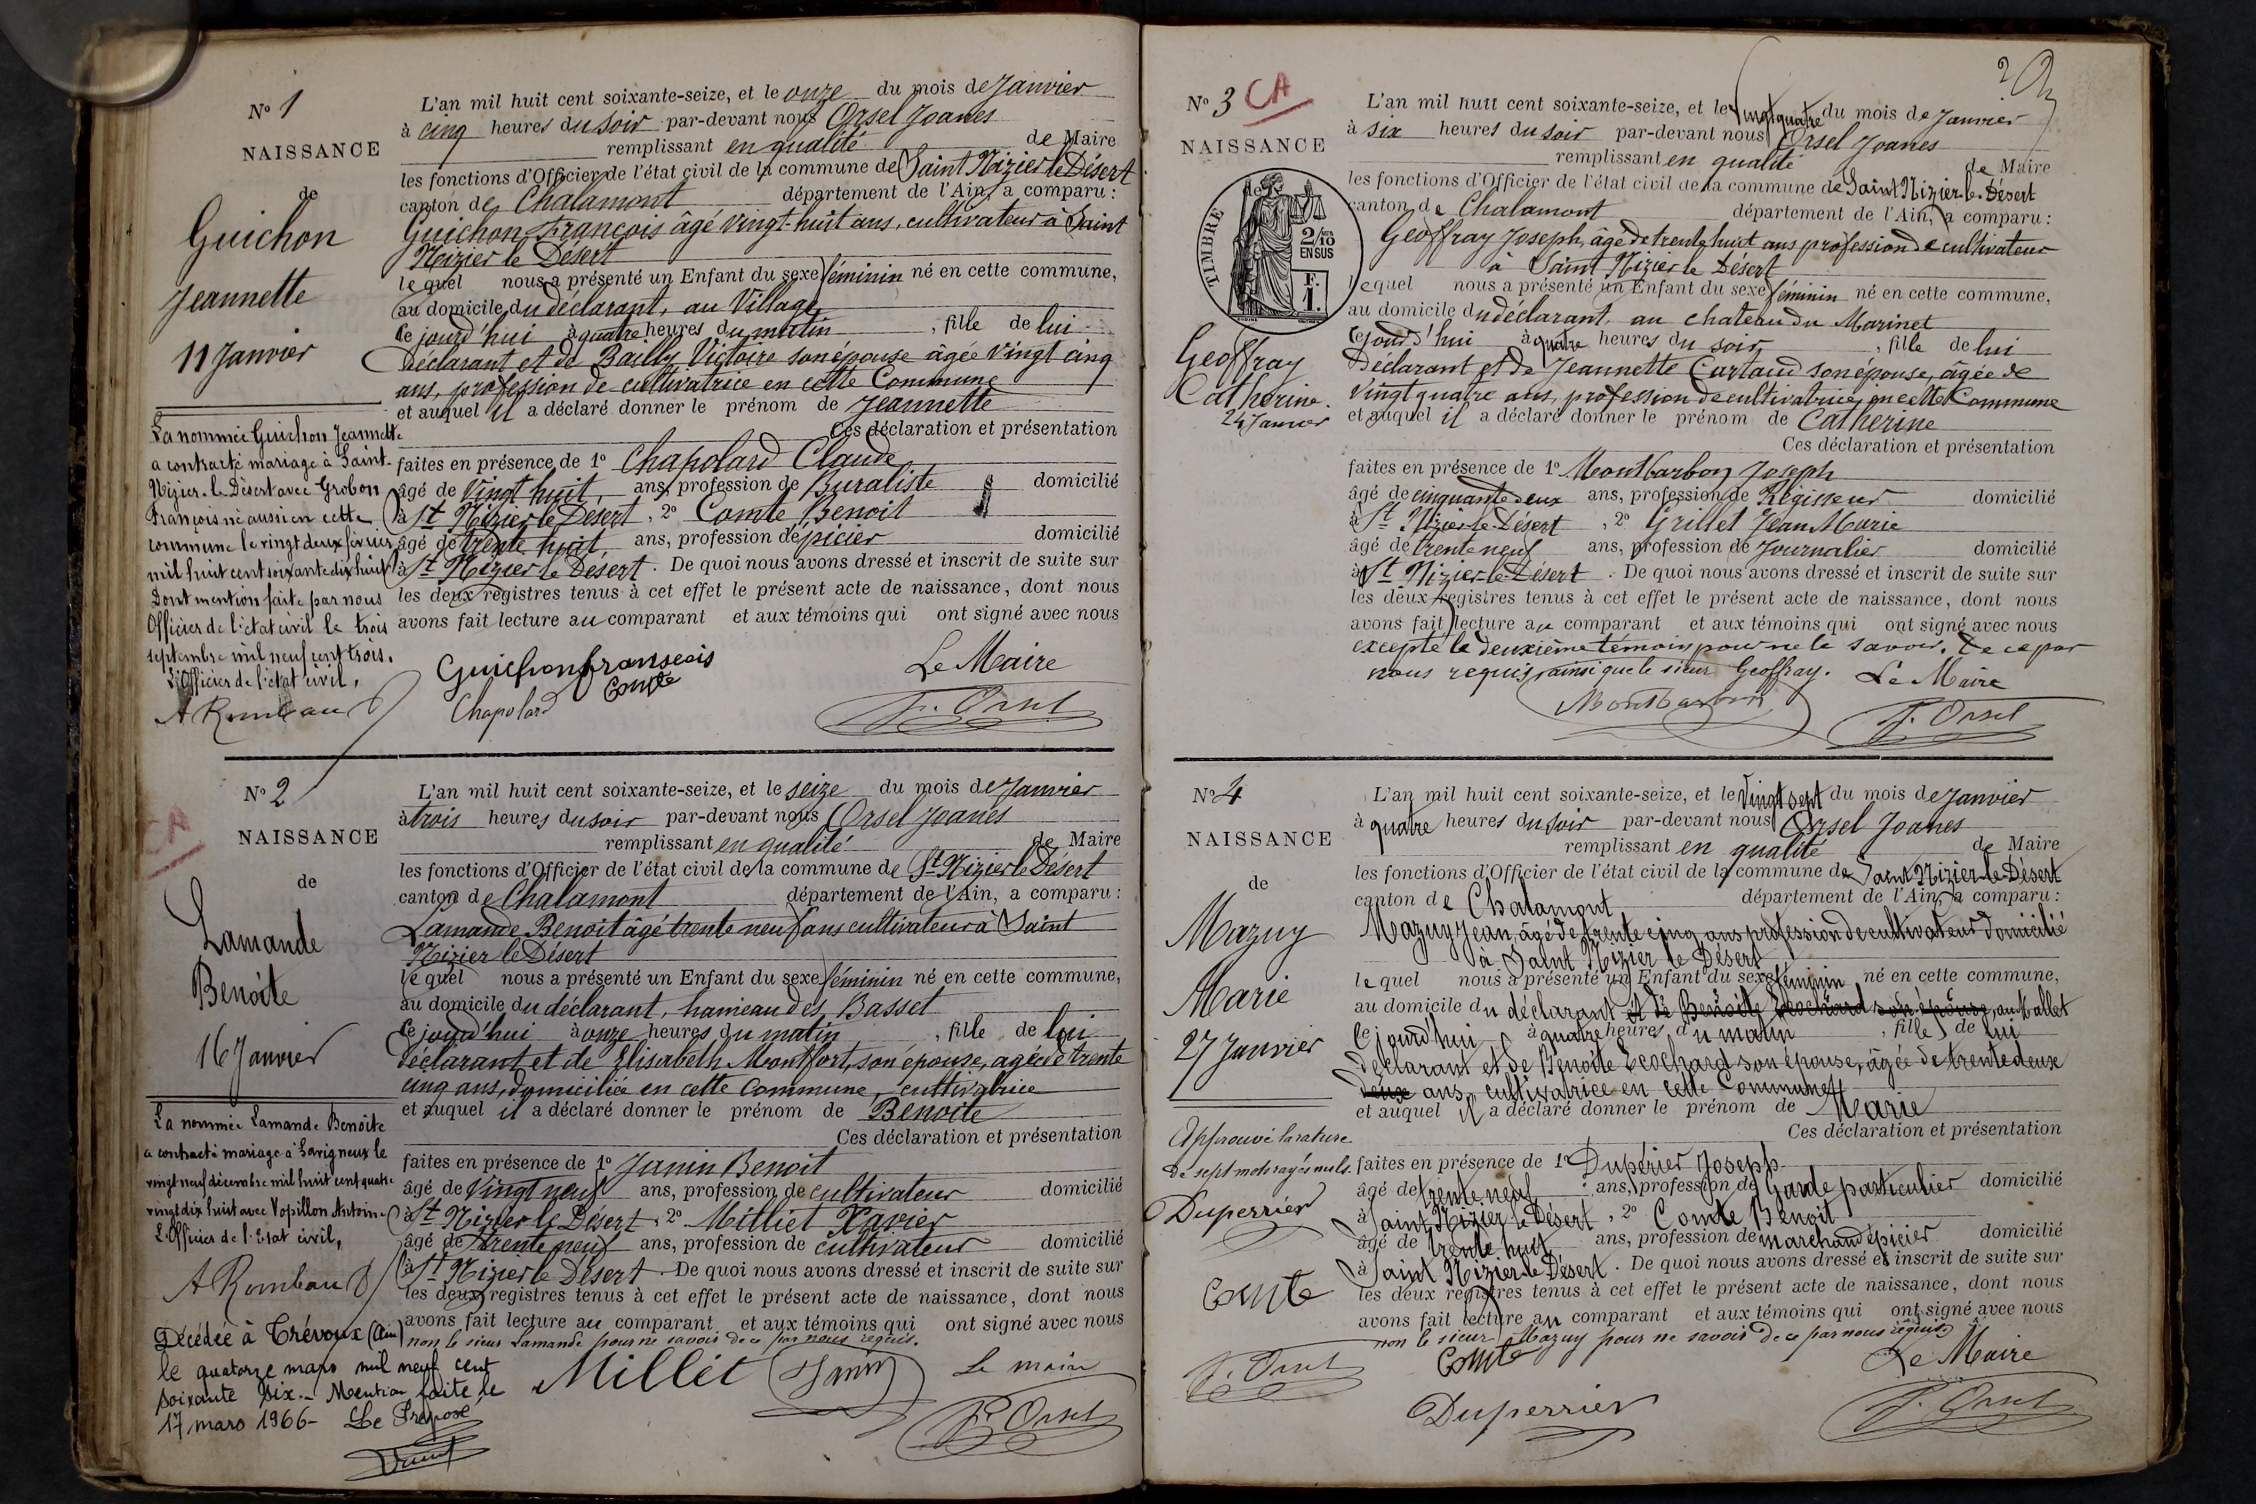 N° 1
NAISSANCE
de
Guichon
Jeannette
11 Janvier
La nommée Guichon Jeannette
a contracté mariage à Saint-
Nizier-le Désert avec Grobon
François né aussi en cette
commune le vingt deux février
mil huit cent soixante dix huit
Dont mention faite par nous
Officier de l'état civil le trois
septembre mil neuf cent trois.
L'Officier de l'état civil,
L'an mil huit cent soixante-seize, et le onze du mois de Janvier
à cinq heures du soir par-devant nous Orsel Joanes
remplissant en qualité de Maire
les fonctions d'Officier de l'état civil de la commune de Saint Nizier le Désert
canton de Chalamont département de l'Ain, a comparu :
Guichon François âgé vingt-huit ans, cultivateur à Saint
Nizier le Désert
lequel nous a présenté un Enfant du sexe féminin né en cette commune,
au domicile du déclarant, au Village
ce jourd'hui à quatre heures du matin , fille de lui
Déclarant et de Bailly Victoire son épouse âgée vingt cinq
ans, profession de cultivatrice en cette Commune
et auquel il a déclaré donner le prénom de Jeannette
Ces déclaration et présentation
faites en présence de 1° Chapolard Claude
âgé de vingt huit, ans, profession de Buraliste domicilié
à St Nizier le Désert , 2° Comte Benoit
âgé de trente huit, ans, profession d'épicier domicilié
à St Nizier le Désert . De quoi nous avons dressé et inscrit de suite sur
les deux registres tenus à cet effet le présent acte de naissance, dont nous
avons fait lecture au comparant et aux témoins qui ont signé avec nous
Guichon franseois
Comte
Chapolard
Le Maire
J. Orsel
N° 2
CA
NAISSANCE
de
Lamande
Benoite
16 Janvier
La nommée Lamande Benoîte
a contracté mariage à Savigneux le
vingt neuf décembre mil huit cent quatre
vingt dix huit avec Vopillon Antoine
L'Officier de l'Etat civil,
Décédée à Trévoux (Ain)
le quatorze mars mil neuf cent
soixante six.- Mention faite le
17 mars 1966- Le Préposé
L'an mil huit cent soixante-seize, et le seize du mois de Janvier
à trois heures du soir par-devant nous Orsel Joanes
remplissant en qualité de Maire
les fonctions d'Officier de l'état civil de la commune de St Nizier le Désert
canton de Chalamont département de l'Ain, a comparu :
Lamande Benoit âgé trente neuf ans cultivateur à Saint
Nizier le Désert
lequel nous a présenté un Enfant du sexe féminin né en cette commune,
au domicile du déclarant, hameau des Basset
ce jourd'hui à onze heures du matin , fille de lui
déclarant et de Elisabeth Montfort, son épouse, agée de trente
cinq ans, domiciliée en cette Commune, cultivatrice
et auquel il a déclaré donner le prénom de Benoite
Ces déclaration et présentation
faites en présence de 1° Janin Benoit
âgé de vingt neuf ans, profession de cultivateur domicilié
à St Nizier le Désert , 2° Milliet Xavier
âgé de trente neuf ans, profession de cultivateur domicilié
à St Nizier le Désert . De quoi nous avons dressé et inscrit de suite sur
les deux registres tenus à cet effet le présent acte de naissance, dont nous
avons fait lecture au comparant et aux témoins qui ont signé avec nous
non le sieur Lamande pour ne savoir de ce par nous requis.
Millet Janin Le maire
J. Orsel
2
N° 3 CA
NAISSANCE
de
TIMBRE
2/10 EN SUS
F. 1.
Geoffray
Catherine.
24 Janvier
L'an mil huit cent soixante-seize, et le vingt quatre du mois de Janvier
à six heures du soir par-devant nous Orsel Joanes
remplissant en qualité de Maire
les fonctions d'Officier de l'état civil de la commune de Saint Nizier-le-Désert
canton de Chalamont département de l'Ain, a comparu :
Geoffray Joseph, âgé de trente huit ans profession de cultivateur
à Saint Nizier le Désert
lequel nous a présenté un Enfant du sexe féminin né en cette commune,
au domicile du déclarant, au chateau du Marinet
cejourd'hui à quatre heures du soir , fille de lui
Déclarant et de Jeannette Curtaud son épouse, âgée de
vingt quatre ans, profession de cultivatrice en cette Commune
et auquel il a déclaré donner le prénom de Catherine
Ces déclaration et présentation
faites en présence de 1° Montbarbon Joseph
âgé de cinquante deux ans, profession de Régisseur domicilié
à St Nizier-le-Désert , 2° Grillet Jean Marie
âgé de trente neuf ans, profession de Journalier domicilié
à St Nizier-le-Désert . De quoi nous avons dressé et inscrit de suite sur
les deux registres tenus à cet effet le présent acte de naissance, dont nous
avons fait lecture au comparant et aux témoins qui ont signé avec nous
excepté le deuxième témoin pour ne le savoir, de ce par
nous requis, ainsi que le sieur Geoffray. Le Maire
Montbarbon J. Orsel
N° 4
NAISSANCE
de
Mazuy
Marie
27 Janvier
Approuvé la rature
de sept mots rayés nuls.
Duperrier
Comte
J. Orsel
L'an mil huit cent soixante-seize, et le vingt sept du mois de Janvier
à quatre heures du soir par-devant nous Orsel Joanes
remplissant en qualité de Maire
les fonctions d'Officier de l'état civil de la commune de Saint Nizier-le-Désert
canton de Chalamont département de l'Ain, a comparu :
Mazuy Jean, âgé de trente cinq ans profession de cultivateur domicilié
à Saint Nizier le Désert
lequel nous a présenté un Enfant du sexe féminin né en cette commune,
au domicile du déclarant et de Benoite Ecochard son épouse, au Mallet
ce jourd'hui à quatre heures du matin , fille de lui
déclarant et de Benoite Ecochard son épouse, âgée de trente deux
deux ans, cultivatrice en cette Commune
et auquel il a déclaré donner le prénom de Marie
Ces déclaration et présentation
faites en présence de 1° Dupérier Joseph
âgé de trente neuf ans, profession de Garde particulier domicilié
à Saint Nizier le Désert , 2° Comte Benoit
âgé de trente huit ans, profession de marchand épicier domicilié
à Saint Nizier-le Désert . De quoi nous avons dressé et inscrit de suite sur
les deux registres tenus à cet effet le présent acte de naissance, dont nous
avons fait lecture au comparant et aux témoins qui ont signé avec nous
non le sieur Mazuy pour ne savoir de ce par nous requis
Comte Le Maire
Duperrier J. Orsel